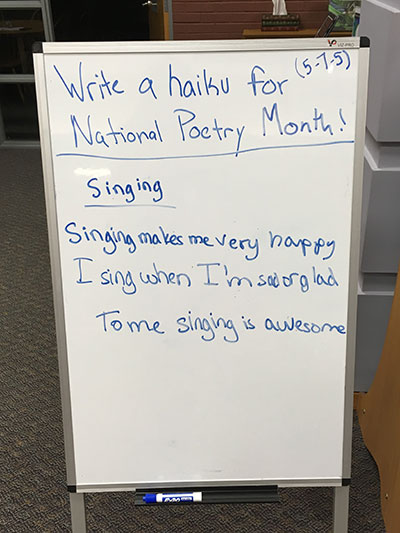 Write a haiku for (5-7-5)
National Poetry Month!
Singing
Singing makes me very happy
I sing when I'm sad or glad
To me singing is awesome
EXPO